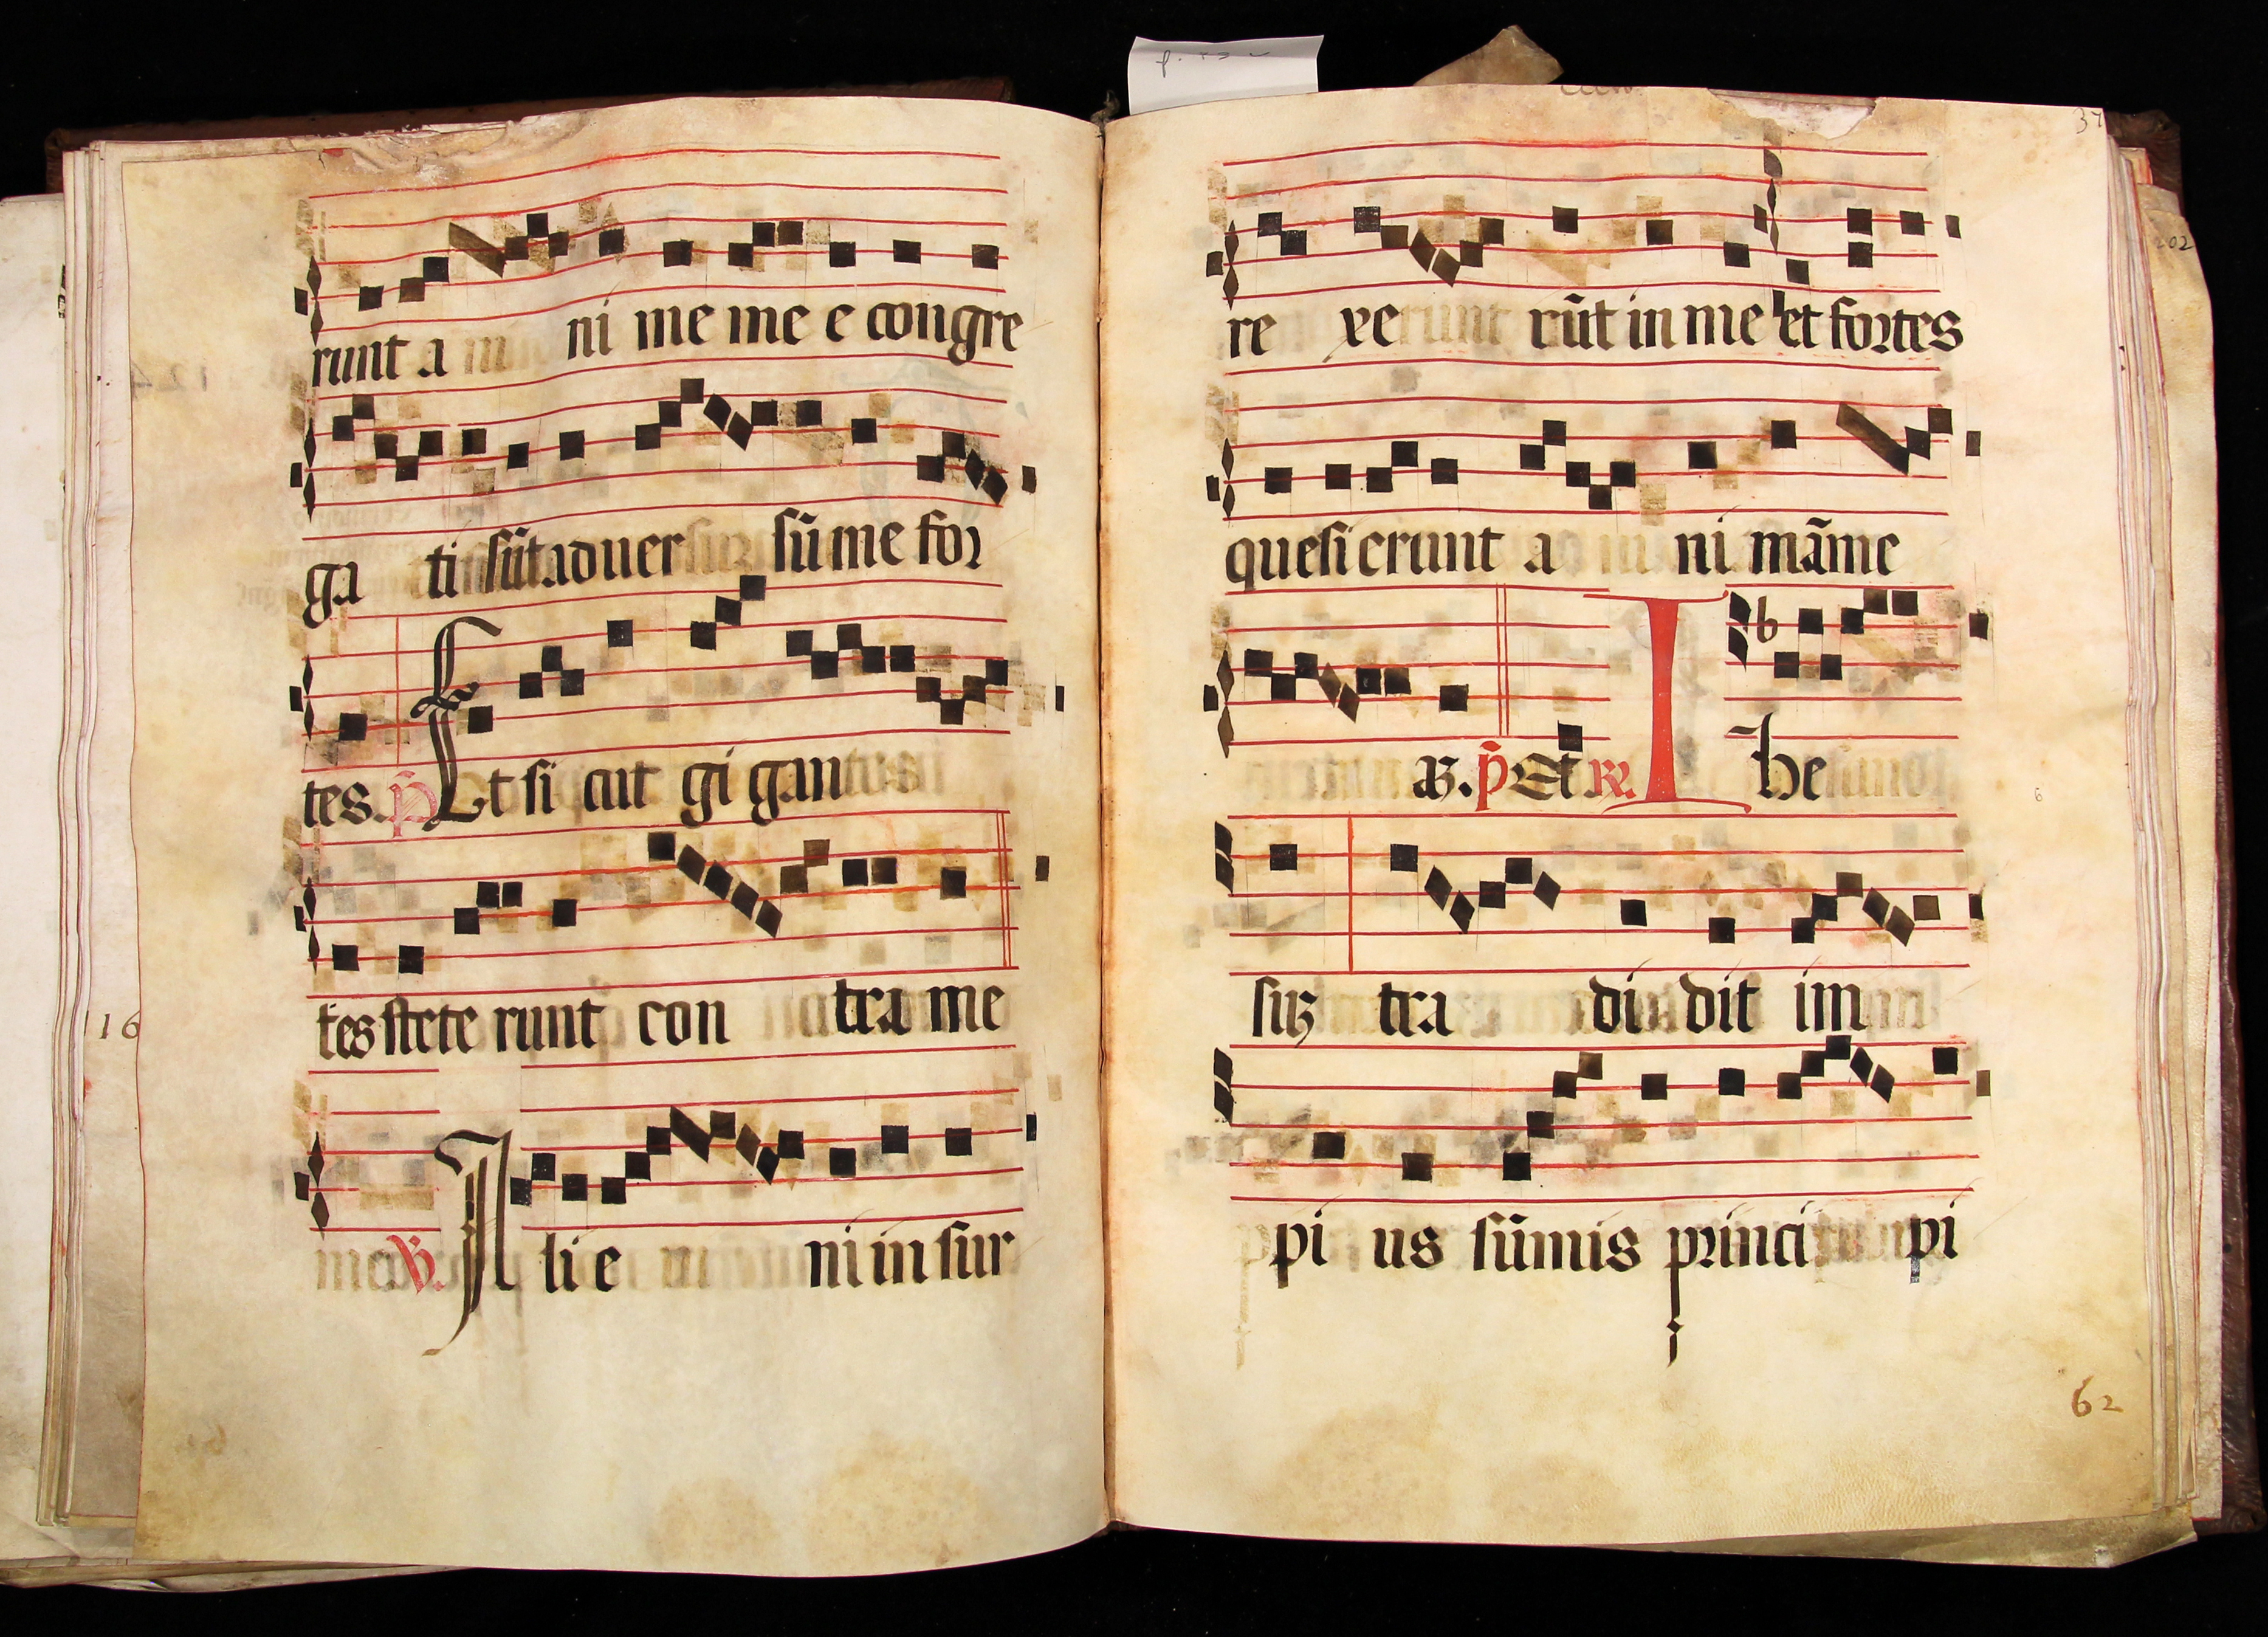 runt a ni me me e congre
ga ti sūt aduer sū me for
tes. p̄ Et si cut gi gan
tes stete runt con tra me
℣. A li e ni in sur
16
37
re xe rūt in me et fortes
quesi erunt a ni mām me
p̄ Et ℟. I he
sus tra di dit im
pi us sūmis princi pi
62
202